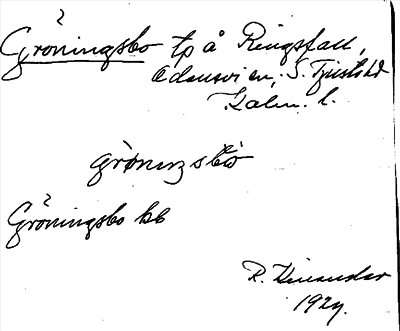 Gröningsbo tp å Ringsfall,
Odensvi sn, S. Tjusts hd
Kalm. l.
grònıŋsbò
Gröningsbo kb
R. Kinander
1927.